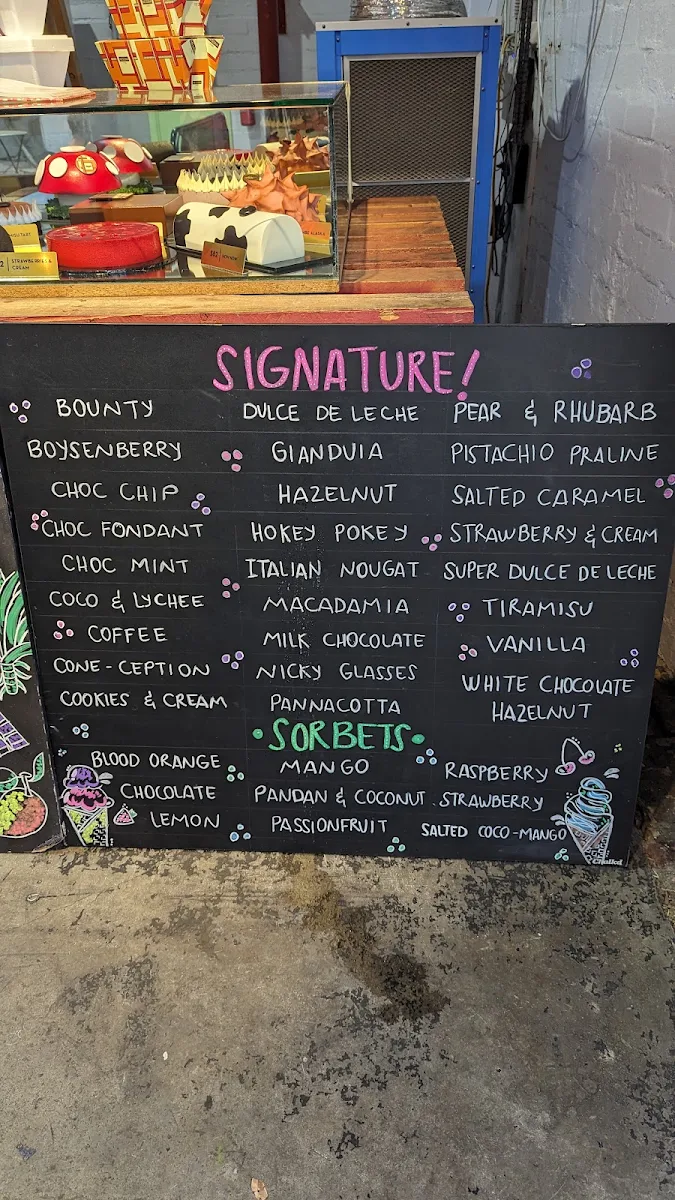 STRAWBERRIES &
CREAM
SIGNATURE!
BOUNTY
BOYSENBERRY
CHOC CHIP
CHOC FONDANT
CHOC MINT
COCO & LYCHEE
COFFEE
CONE-CEPTION
COOKIES & CREAM
DULCE DE LECHE
GIANDUIA
HAZELNUT
HOKEY POKEY
ITALIAN NOUGAT
MACADAMIA
MILK CHOCOLATE
NICKY GLASSES
PANNACOTTA
PEAR & RHUBARB
PISTACHIO PRALINE
SALTED CARAMEL
STRAWBERRY & CREAM
SUPER DULCE DE LECHE
TIRAMISU
VANILLA
WHITE CHOCOLATE
HAZELNUT
SORBETS
BLOOD ORANGE
CHOCOLATE
LEMON
MANGO
PANDAN & COCONUT
PASSIONFRUIT
RASPBERRY
STRAWBERRY
SALTED COCO-MANGO
Chalked